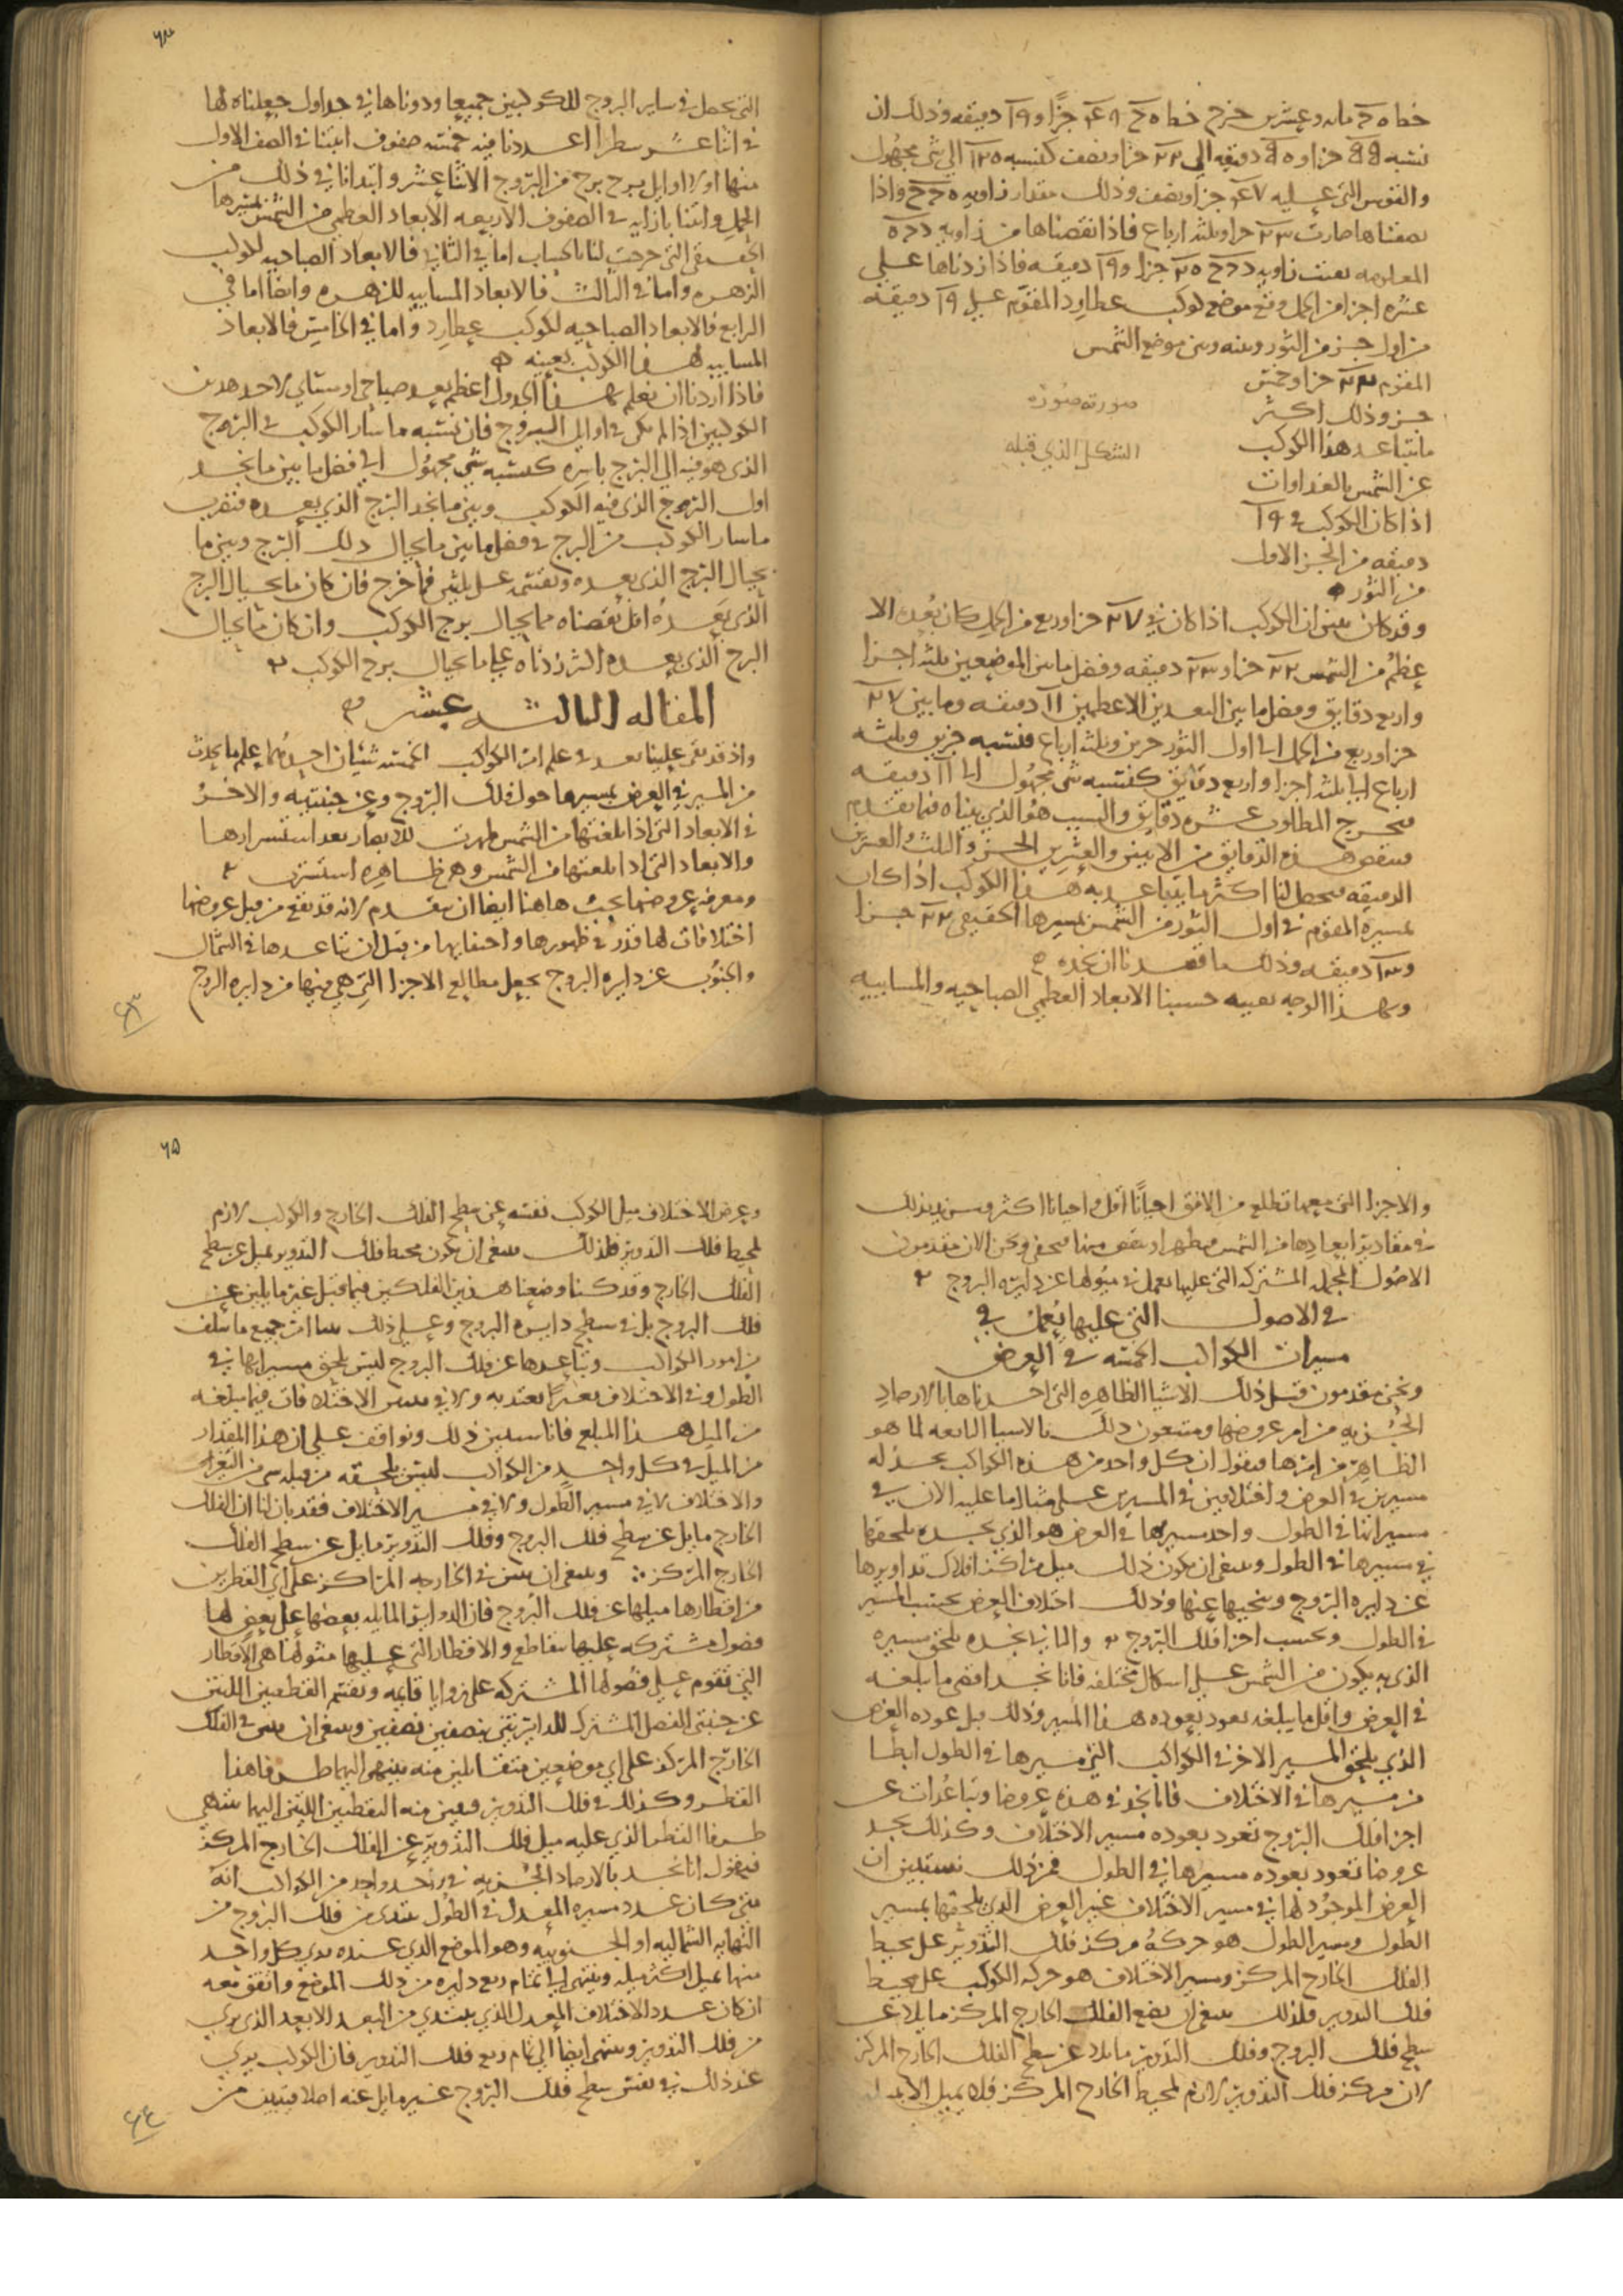 خط ٥ ح مايه وعشرين خرج خط ٥ ح جزًا و ١٩ دقيقه وذلك ان
نسبه جزا و دقيقه الى جزا ونصف كنسبه الى شي مجهول
والقوس التي عليه جزا ونصف وذلك مقدار زاويه واذا
نصفناها صارت جزا وثلثه ارباع فاذا نقصناها من زاويه
المعلومه بقيت زاويه جزا و ١٩ دقيقه فاذا زدناها على
عشره اجزا من الحمل وقع موضع كوكب عطارد المقوم على ١٩ دقيقه
من اول جز من الثور وبينه وبين موضع الشمس
المقوم جزا وخمس
جز وذلك اكثر
ما يتباعد هذا الكوكب
صورته صورة
الشكل الذي قبله
عن الشمس بالغداوات
اذا كان الكوكب في ١٩
دقيقه من الجز الاول
من الثور
وقد كان تبين ان الكوكب اذا كان في ٢٧ جزا وربع من الحمل كان بعده الا
عظم من الشمس ٢٢ جزا و ٢٣ دقيقه وفضل ما بين الموضعين ثلثه اجزا
واربع دقايق وفضل ما بين البعدين الاعظمين ١١ دقيقه وما بين ٢٧
جزا وربع من الحمل الى اول الثور جزين وثلثه ارباع فنسبه جزين وثلثه
ارباع الى ثلثه اجزا واربع دقايق كنسبه شي مجهول الى ١١ دقيقه
فيخرج المطلوب عشره دقايق والسبب هو الذي بيناه فيما تقدم
فننقص هذه الدقايق من الاثنين والعشرين الجز والثلث والعشرين
الدقيقه فيحصل لنا اكثر ما يتباعد به هذا الكوكب اذا كان
بمسيره المقوم في اول الثور من الشمس بمسيرها الحقيقي ٢٢ جزا
و ١٣ دقيقه وذلك ما قصدنا ان نجده
وبهذا الوجه بعينه حسبنا الابعاد العظمى الصباحيه والمسابيه
٦٤
التي تحصل في ساير البروج للكوكبين جميعا ودوناها في جداول جعلناها لها
في اثنا عشر سطرا اعددنا فيه خمسه صفوف اثبتنا في الصف الاول
منها اولا اوايل برج برج من البروج الاثنا عشر وابتدانا في ذلك من
الحمل واثبتنا بازايه في الصفوف الاربعه الابعاد العظمى من الشمس بمسيرها
الحقيقي التي خرجت لنا بالحساب اما في الثاني فالابعاد الصباحيه لكوكب
الزهره واما في الثالث فالابعاد المسابيه للزهره وايضا اما في
الرابع فالابعاد الصباحيه لكوكب عطارد واما في الخامس فالابعاد
المسابيه لهذا الكوكب بعينه
فاذا اردنا ان نعلم بهذا الجدول اعظم بعد صباحي او مساي لاحد هذين
الكوكبين اذا لم يكن في اوايل البروج فان نسبه ما سار الكوكب في البرج
الذي هو فيه الى البرج باسره كنسبه شي مجهول الى فضل ما بين ما نجد
اول البروج الذي فيه الكوكب وبين ما نجد البرج الذي بعده فنضرب
ما سار الكوكب من البرج في فضل ما بين ما بحيال ذلك البرج وبين ما
بحيال البرج الذي بعده ونقسمه على ثلثين فما خرج فان كان ما بحيال البرج
الذي بعده اقل نقصناه مما بحيال برج الكوكب وان كان ما بحيال
البرج الذي بعده اكثر زدناه على ما بحيال برج الكوكب
المقاله الثالثه عشر
واذ قد بقى علينا بعد في علم امر الكواكب الخمسه شيان احدهما علم ما يحدث
من المسير في العرض بمسيرها حول فلك البروج وعن جنبتيه والاخر
في الابعاد التي اذا بلغتها من الشمس ظهرت للابصار بعد استسرارها
والابعاد التي اذا بلغتها من الشمس وهي ظاهره استسرت
ومعرفه عروضها يجب هاهنا ايضا ان يتقدم لانه قد يقع من قبل عروضها
اختلافات لها قدر في ظهورها واختفايها من قبل ان تباعدها في الشمال
والجنوب عن دايره البروج يجعل مطالع الاجزا التي هي فيها من دايره البروج
٦٣
والاجزا التي معها تطلع من الافق احيانًا اقل واحيانا اكثر ويزيد بذلك
في مقادير ابعادها من الشمس فتظهر او ينقص منها فتخفى ونحن الان مقدمون
الاصول المجمله المشتركه التي عليها نعمل في ميولها عن دايره البروج
في الاصول التي عليها يُعمل في
مسيرات الكواكب الخمسه في العرض
ونحن مقدمون قبل ذلك الاشيا الظاهره التي اخذناها بالارصاد
الجزييه من امر عروضها ومتبعون ذلك بالاشيا التابعه لما هو
الظاهر من امرها فنقول ان كل واحد من هذه الكواكب نجد له
مسيرين في العرض واختلافين في المسير على مثال ما عليه الان في
مسيراتنا في الطول واحد مسيرها في العرض هو الذي نجده يلحقها
في مسيرها في الطول وينبغي ان يكون ذلك ميل مراكز افلاك تداويرها
عن دايره البروج وتنحيها عنها وذلك اختلاف العرض بحسب المسير
في الطول وبحسب اجزا فلك البروج والثاني نجده يلحق مسيره
الذي به يكون من الشمس على اشكال مختلفه فانا نجد اقصى ما يبلغه
في العرض واقل ما يبلغه يعود بعوده هذا المسير وذلك قبل عوده العرض
الذي يلحق المسير الاخر في الكواكب التي مسيرها في الطول ابطا
من مسيرها في الاختلاف فانا نجد في هذه عروضا وتباعدات عن
اجزا فلك البروج تعود بعوده مسير الاختلاف وكذلك نجد
عروضا تعود بعوده مسيرها في الطول فمن ذلك نستبين ان
العرض الموجود لها في مسير الاختلاف غير العرض الذي يلحقها بمسير
الطول ومسير الطول هو حركه مركز فلك التدوير على محيط
الفلك الخارج المركز ومسير الاختلاف هو حركه الكوكب على محيط
فلك التدوير فلذلك ينبغي ان نضع الفلك الخارج المركز مايلا عن
سطح فلك البروج وفلك التدوير مايلا عن سطح الفلك الخارج المركز
لان مركز فلك التدوير لازم لمحيط الخارج المركز فلا يميل الا بميله
٦٥
وعرض الاختلاف ميل الكوكب نفسه عن سطح الفلك الخارج والكوكب لازم
لمحيط فلك التدوير فلذلك ينبغي ان يكون محيط فلك التدوير يميل عن سطح
الفلك الخارج وقد كنا وضعنا هذين الفلكين فيما قبل غير مايلين عن
فلك البروج بل في سطح دايره البروج وعلى ذلك بينا امر جميع ما سلف
من امور الكواكب وتباعدها عن فلك البروج ليس يلحق مسيراتها في
الطول وفي الاختلاف تغيرًا يعتد به ولا في مسير الاختلاف فيما يبلغه
من الميل هذا المبلغ فانا سنبين ذلك ونوافق على ان هذا المقدار
من الميل في كل واحد من الكواكب ليس يلحقه من قبله شي من التغير
والاختلاف لا في مسير الطول ولا في مسير الاختلاف فقد بان لنا ان الفلك
الخارج مايل عن سطح فلك البروج وفلك التدوير مايل عن سطح الفلك
الخارج المركز وينبغي ان نبين في الخارجه المراكز على اي القطرين
من اقطارها ميلها عن فلك البروج فان الدواير المايله بعضها على بعض لها
فصول مشتركه عليها تتقاطع والاقطار التي عليها ميولها هي الاقطار
التي تقوم على فصولها المشتركه على زوايا قايمه وتقسم القطعتين اللتين
عن جنبتي الفصل المشترك للدايرتين بنصفين نصفين وينبغي ان نبين في الفلك
الخارج المركز على اي موضعين متقابلين منه ينتهي اليهما طرفا هذا
القطر وكذلك في فلك التدوير ونبين منه النقطتين اللتين اليهما ينتهي
طرفا القطر الذي عليه ميل فلك التدوير عن الفلك الخارج المركز
فنقول انا نجد بالارصاد الجزييه في واحد واحد من الكواكب انه
متى كان عدد مسيره المعدل في الطول يبتدى من فلك البروج من
النهايه الشماليه او الجنوبيه وهو الموضع الذي عنده يرى كل واحد
منها يميل اكثر ميله وينتهي الى تمام ربع دايره من ذلك الموضع واتفق معه
ان كان عدد الاختلاف المعدل الذي يبتدي من البعد الابعد الذي يرى
من فلك التدوير وينتهي ايضا الى تمام ربع فلك التدوير فان الكوكب يرى
عند ذلك في نفس سطح فلك البروج غير مايل عنه اصلا فتبين من
٦٤